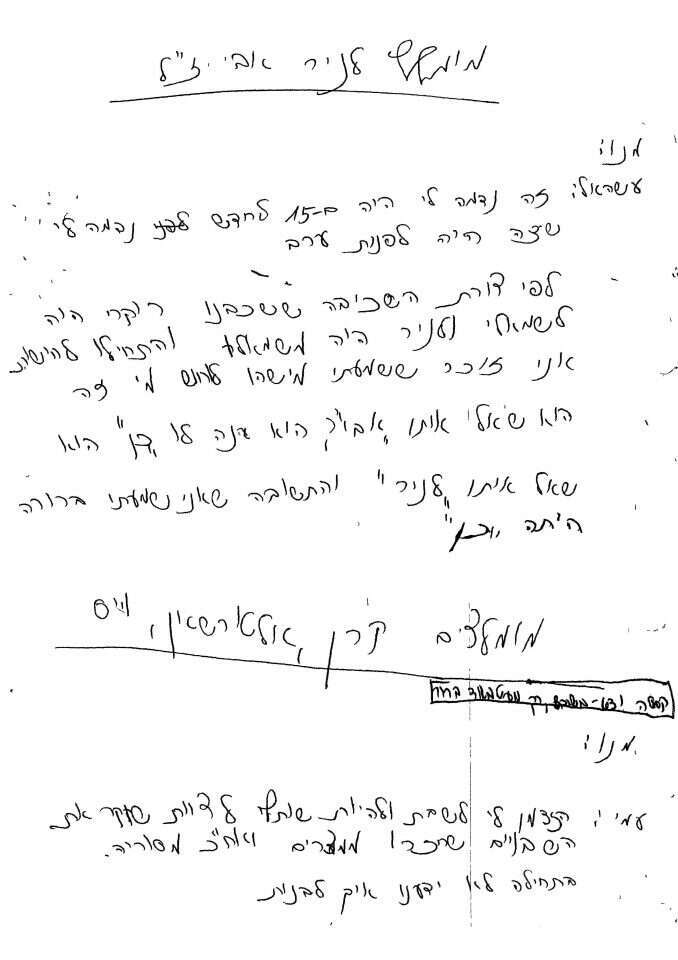 מומלץ לניר אבי ז"ל
מנו:
זה נדמה לי היה ב-15 לחדש לפני נדמה לי
שזה היה לפנות ערב
לפי צורת השכיבה ששכבנו היה
לשמאלי ולניר היה משמאלו והתחילו
אני זוכר ששמעתי מישהו לוחש מי זה
הוא שאל אותו הוא ענה לו "כן" הוא
שאל איתו "לניר" והתשובה שאני שמעתי ברורה
היתה "כן"
מומלצים קרן,
מנו:
עמי: הזדמן לי לשבת ולהיות שותף לצוות שחקר את
השבויים שחזרו ממצרים ואח"כ מסוריה.
בתחילה לא ידענו איך לבנות